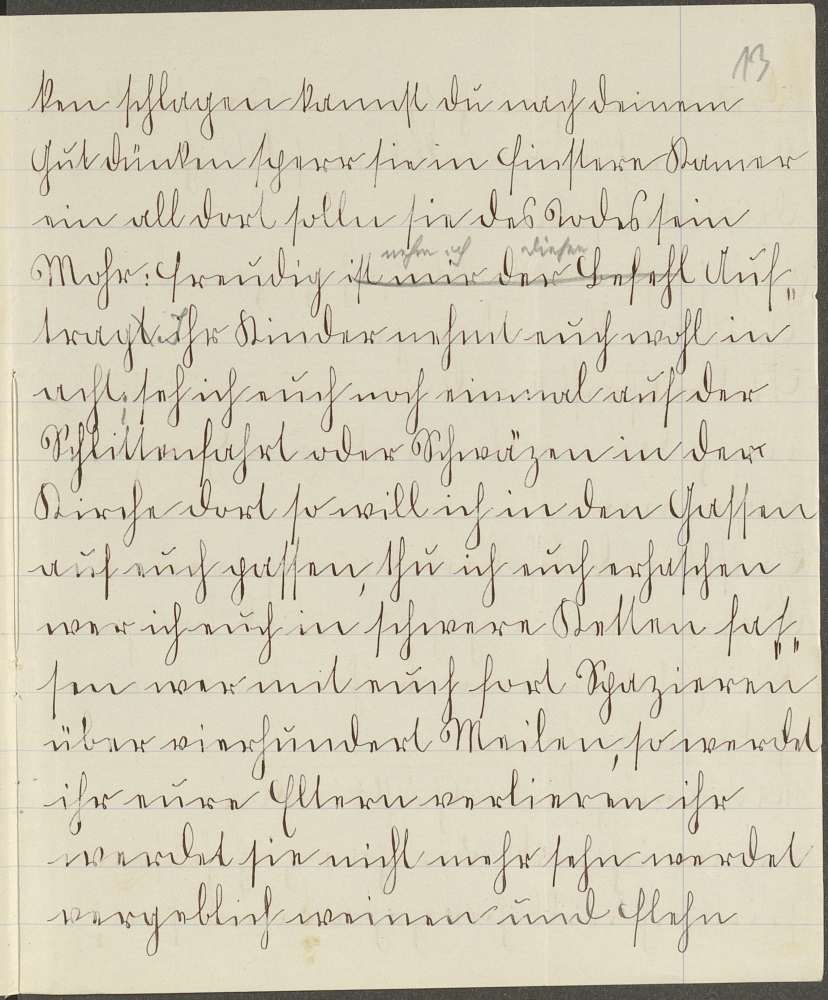 13
ken schlagen kannst du nach deinem
Gut dünken sperr sie in finstere Kamer
ein all dort solln sie des Todes sein
nehm ich diesen
Mohr: freudig ist mir der Befehl Auf„
tragt. Ihr Kinder nehmt euch wohl in
acht; seh ich euch noch einmal auf der
Schlittenfahrt oder Schwäzen in der
Kirche dort so will ich in den Gassen
auf euch passen, thu ich euch erhaschen
wer ich euch in schwere Ketten faß„
sen wer mit euch fort Spazieren
über vierhundert Meilen, so werdet
ihr eure Eltern verlieren ihr
werdet sie nicht mehr sehn werdet
vergeblich weinen und flehn